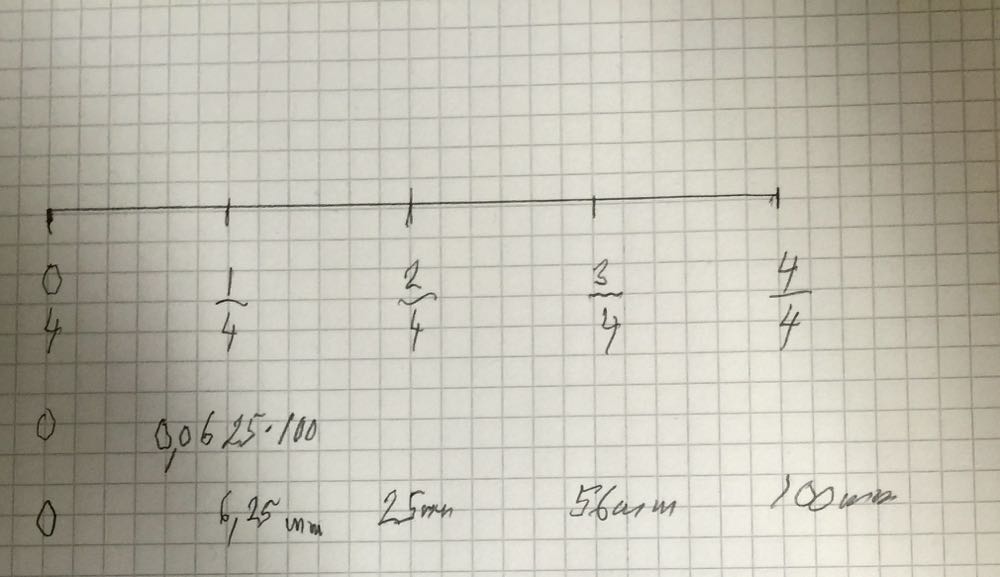 0 1 2 3 4
4 4 4 4 4
0 0,0625·100
0 6,25mm 25mm 56mm 100mm